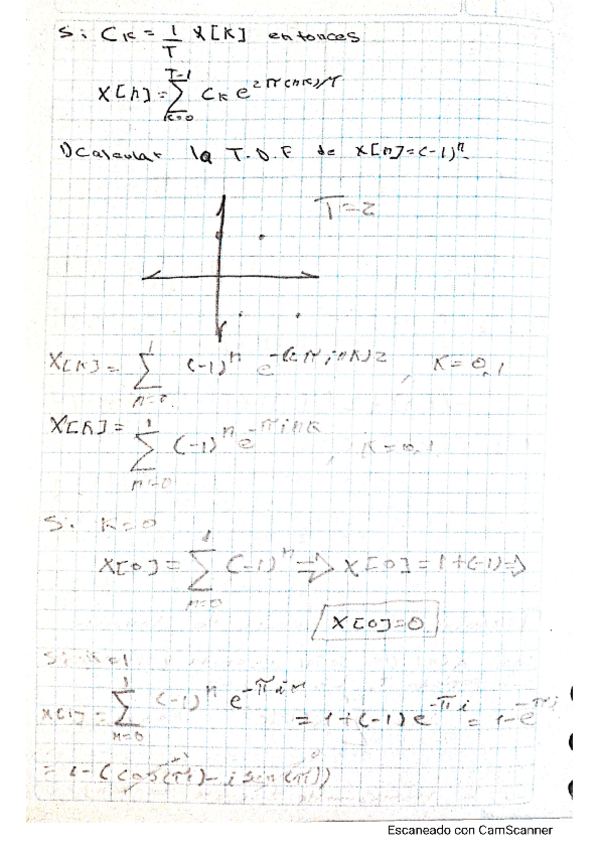 Si C_K = 1/T X[K] entonces
X[n] = T-1 Σ K=0 C_K e^2π(nK)/T
1) Calcular la T.D.F de X[n]=(-1)^n.
T=2
X[K] = 1 Σ n=0 (-1)^n e^-(2πinK)2, K=0,1
X[K] = 1 Σ n=0 (-1)^n e^-πinK, K=0,1
Si K=0
X[0] = 1 Σ n=0 (-1)^n => X[0] = 1+(-1) =>
X[0]=0
Si K=1
X[1] = 1 Σ n=0 (-1)^n e^-πin = 1+(-1)e^-πi = 1-e^-πi
= 1-(cos(π)-i sen(π))
Escaneado con CamScanner